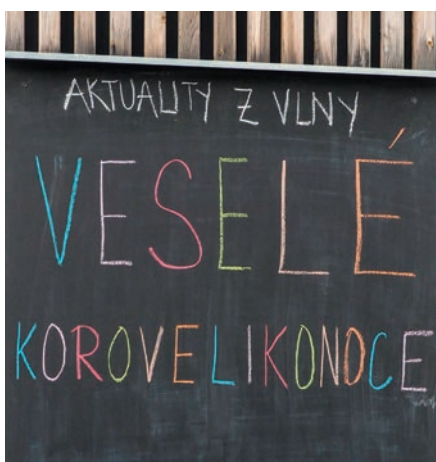 AKTUALITY Z VLNY
VESELÉ
KOROVELIKONOCE